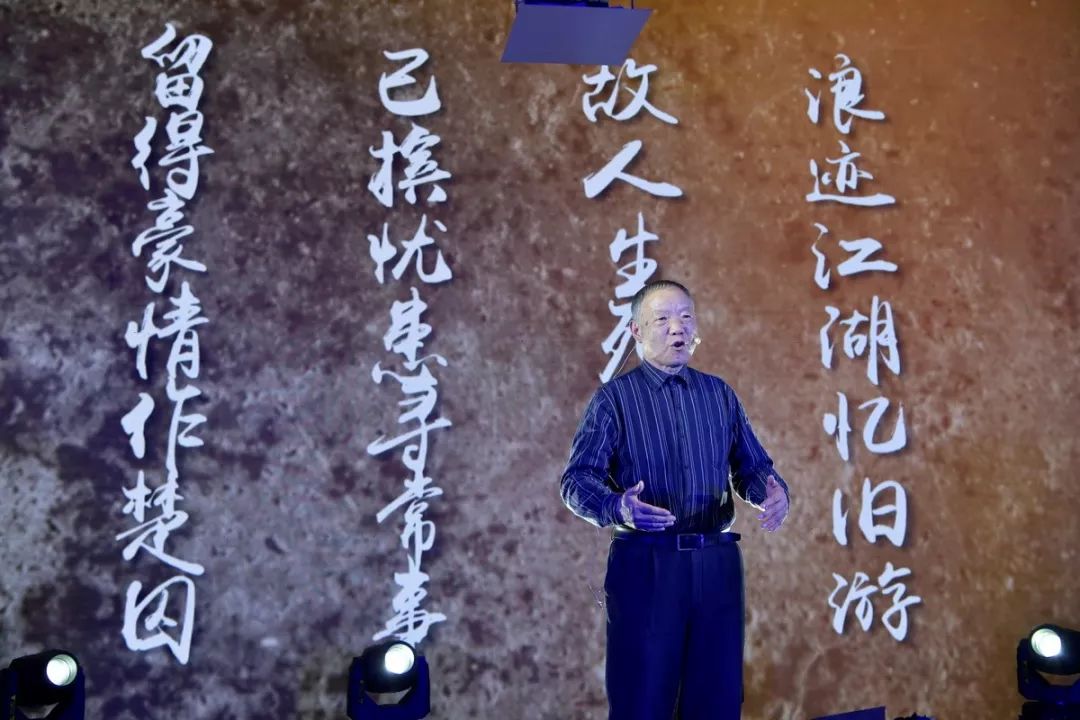 浪迹江湖忆旧游
故人生
已摈忧患寻常事
留得豪情作楚囚